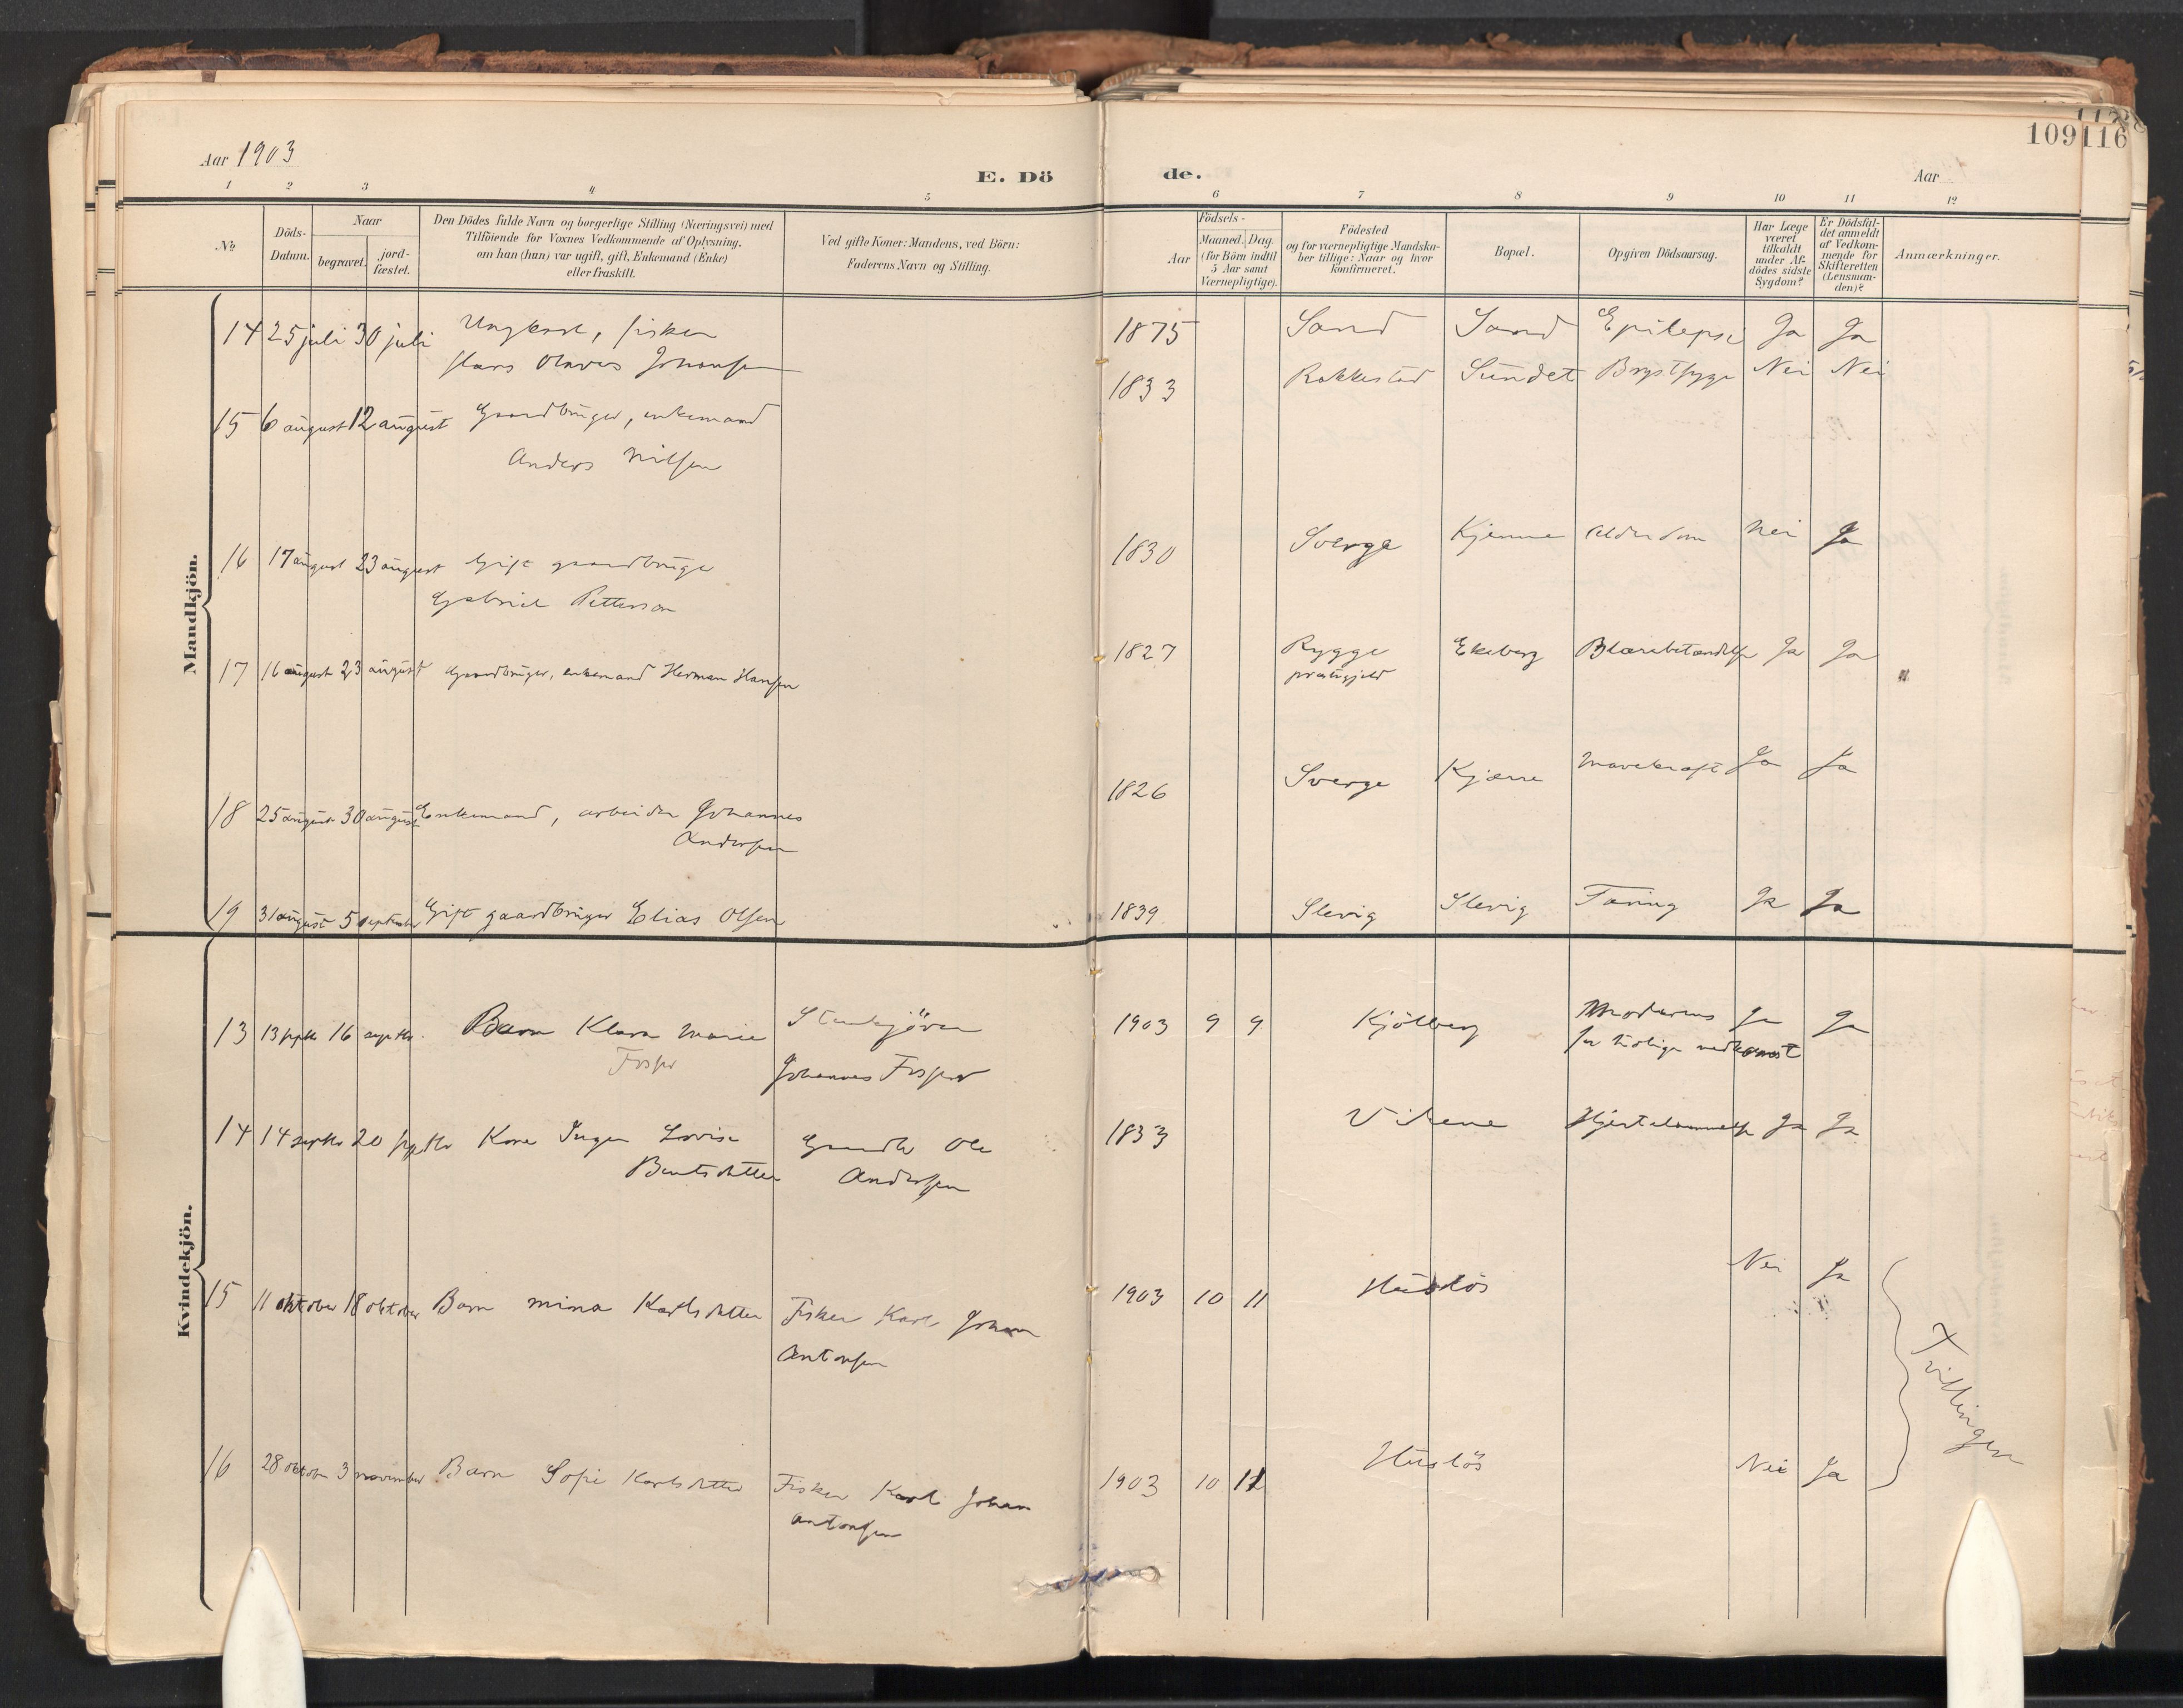 109
116
Aar 1903
E. Dö
de.
Aar
1 2 3 4 5 6 7 8 9 10 11 12
No
Döds-Datum.
Naar
begravet.
jord-fæstet.
Den Dödes fulde Navn og borgerlige Stilling (Næringsvei) med
Tilföiende for Voxnes Vedkommende af Oplysning,
om han (hun) var ugift, gift, Enkemand (Enke)
eller fraskilt.
Ved gifte Koner: Mandens, ved Börn:
Faderens Navn og Stilling.
Födsels-
Aar
Maaned. Dag.
(for Börn indtil
5 Aar samt
Værnepligtige).
Födested
og for værnepligtige Mandska-
ber tillige: Naar og hvor
konfirmeret.
Bopæl.
Opgiven Dödsaarsag.
Har Læge
været
tilkaldt
under Af-
dödes sidste
Sygdom?
Er Dödsfal-
det anmeldt
af Vedkom-
mende for
Skifteretten
(Lensman-
den)?
Anmærkninger.
Mandkjön.
14 25 juli 30 juli Ungkarl, fisker 1875 Sand Sand Epilepsi Ja Ja
Hans Olaves Johansen
15 6 august 12 august Gaardbruger, enkemand 1833 Rakkestad Sundet Brystsyge Nei Nei
Anders Nilsen
16 17 august 23 august Gift gaardbruger 1830 Sverge Kjenne Alderdom Nei Ja
Gabriel Petterson
17 16 august 23 august Gaardbruger, enkemand Herman Hansen 1827 Rygge Ekeberg Blærebetændelse Ja Ja
præstegjeld
18 25 august 30 august Enkemand, arbeider Johannes 1826 Sverge Kjærre Mavekræft Ja Ja
Andersen
19 31 august 5 september Gift gaardbruger Elias Olsen 1839 Slevig Slevig Tæring Ja Ja
Kvindekjön.
13 13 septbr 16 septbr. Barn Klara Marie 1903 9 9 Kjölberg Moderens Ja Ja
for tidlige nedkomst
Johannes
14 14 septbr 20 septbr Kone Inger Lovise Gaardbr Ole 1833 Vikene Hjertelammelse Ja Ja
Berntsdatter Andersen
15 11 oktober 18 oktober Barn Mina Karlsdatter Fisker Karl Johan 1903 10 11 Huslös Nei Ja
Antonsen
16 28 oktober 3 november Barn Sofie Karlsdatter Fisker Karl Johan 1903 10 11 Huslös Nei Ja
Antonsen
Tvillinger